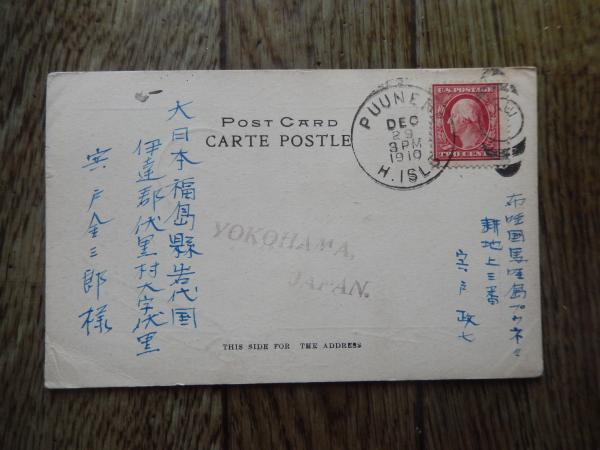 POST CARD
CARTE POSTLE
PUUNEN
DEC
29
3PM
1910
H. ISL
U.S. POSTAGE
TWO CENTS
大日本福島縣岩代国
伊達郡伏黒村大字伏黒
宍戸金三郎様
YOKOHAMA,
JAPAN.
布哇国馬哇島プウネネ
耕地上三番
宍戸政七
THIS SIDE FOR THE ADDRESS